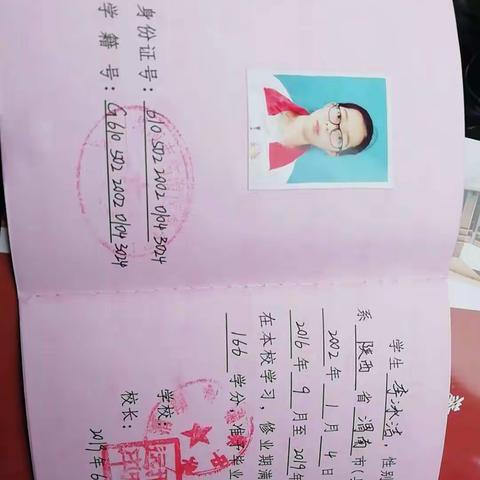 身份证号：610 502 2002 0104 3024
学籍号：G 610 502 2002 0104 3024
学生 李冰洁，性别
系 陕西 省 渭南 市(
2002 年 1 月 4 日
2016 年 9 月至 2019年
在本校学习，修业期满
166 学分，准予毕业
学校：
校长：
2019年6